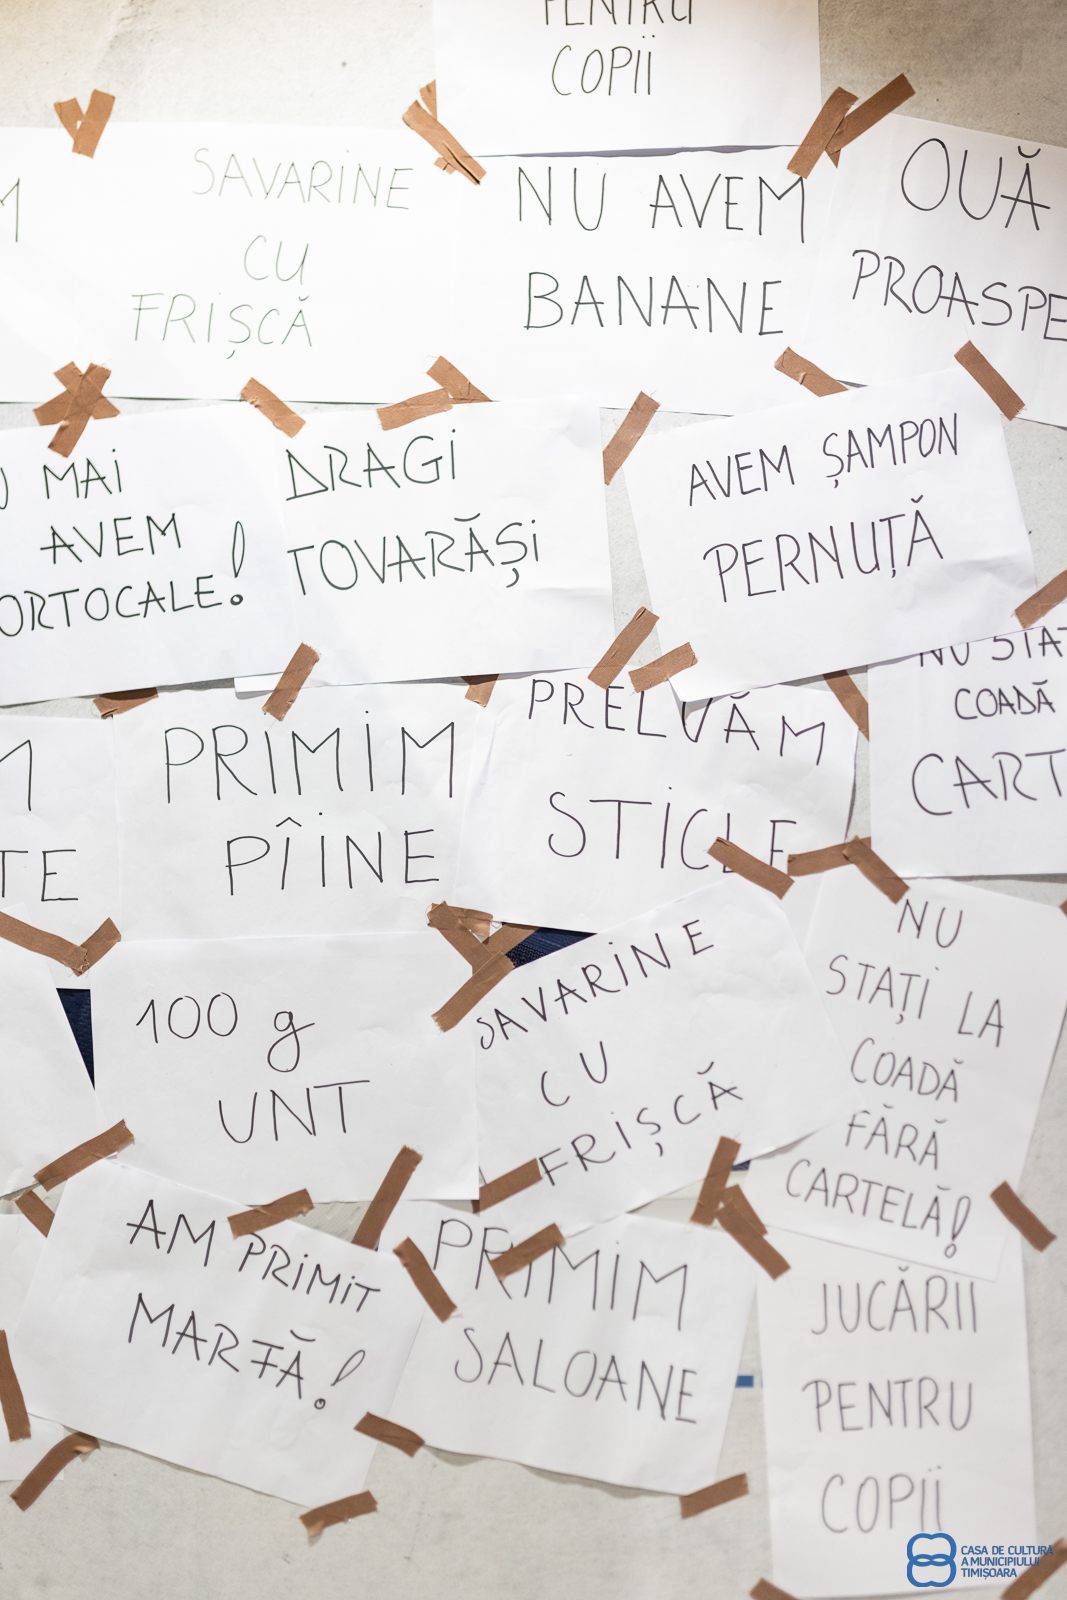 PENTRU
COPII
M
SAVARINE
CU
FRIȘCĂ
NU AVEM
BANANE
OUĂ
PROASPE
U MAI
AVEM
ORTOCALE!
DRAGI
TOVARĂȘI
AVEM ȘAMPON
PERNUȚĂ
NU STAȚ
COADĂ
CART
M
TE
PRIMIM
PÎINE
PRELUĂM
STICLE
100 g
UNT
SAVARINE
CU
FRIȘCĂ
NU
STAȚI LA
COADĂ
FĂRĂ
CARTELĂ!
AM PRIMIT
MARFĂ!
PRIMIM
SALOANE
JUCĂRII
PENTRU
COPII
CASA DE CULTURĂ
A MUNICIPIULUI
TIMIȘOARA